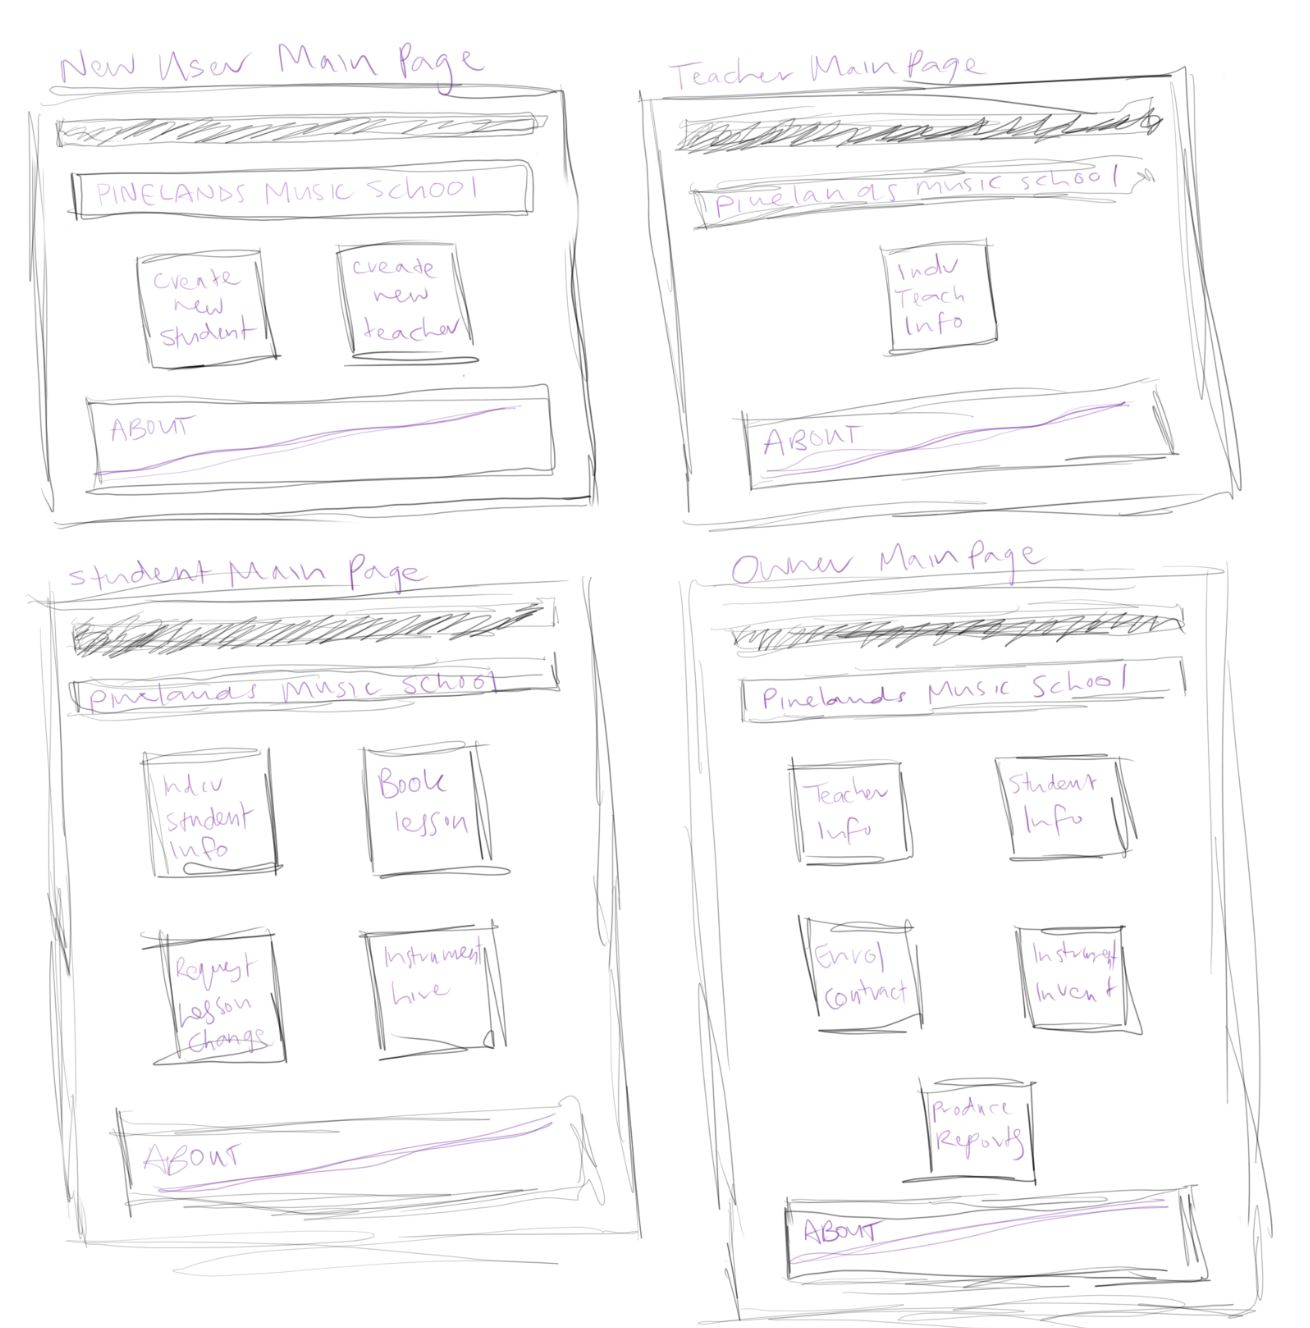 New User Main Page
PINELANDS MUSIC SCHOOL
Create
new
student
create
new
teacher
ABOUT
Teacher Main Page
Pinelands music school
Indv
Teach
Info
ABOUT
Student Main Page
Pinelands Music School
Indiv
student
Info
Book
lesson
Request
Lesson
Change
Instrument
hire
ABOUT
Owner Main Page
Pinelands Music School
Teacher
Info
Student
Info
Enrol
contract
Instrument
Invent
Produce
Reports
ABOUT